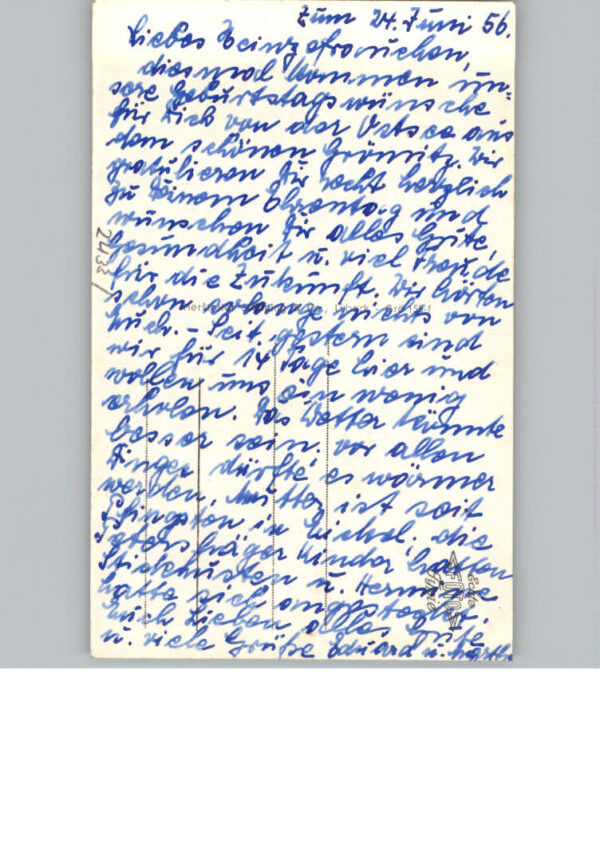 Zum 24. Juni 56.
Liebes Heinzefrauchen,
diesmal kommen un=
sere Geburtstagswünsche
für Dich von der Ostsee aus
dem schönen Grömitz. Wir
gratulieren Dir recht herzlich
zu Deinem Ehrentag und
wünschen Dir alles Gute,
Gesundheit u. viel Freude
für die Zukunft. Wir hörten
schon so lange nichts von
Euch. – Seit gestern sind
wir für 14 Tage hier und
wollen uns ein wenig
erholen. Das Wetter könnte
besser sein, vor allen
Dingen dürfte es wärmer
werden. Mutter ist seit
Pfingsten in die
Kinder hatten
Stickhusten u. Hermine
hatte sich angesteckt.
Euch Lieben alles Gute
u. viele Grüße Eduard u.
2438/
Echte
Foto